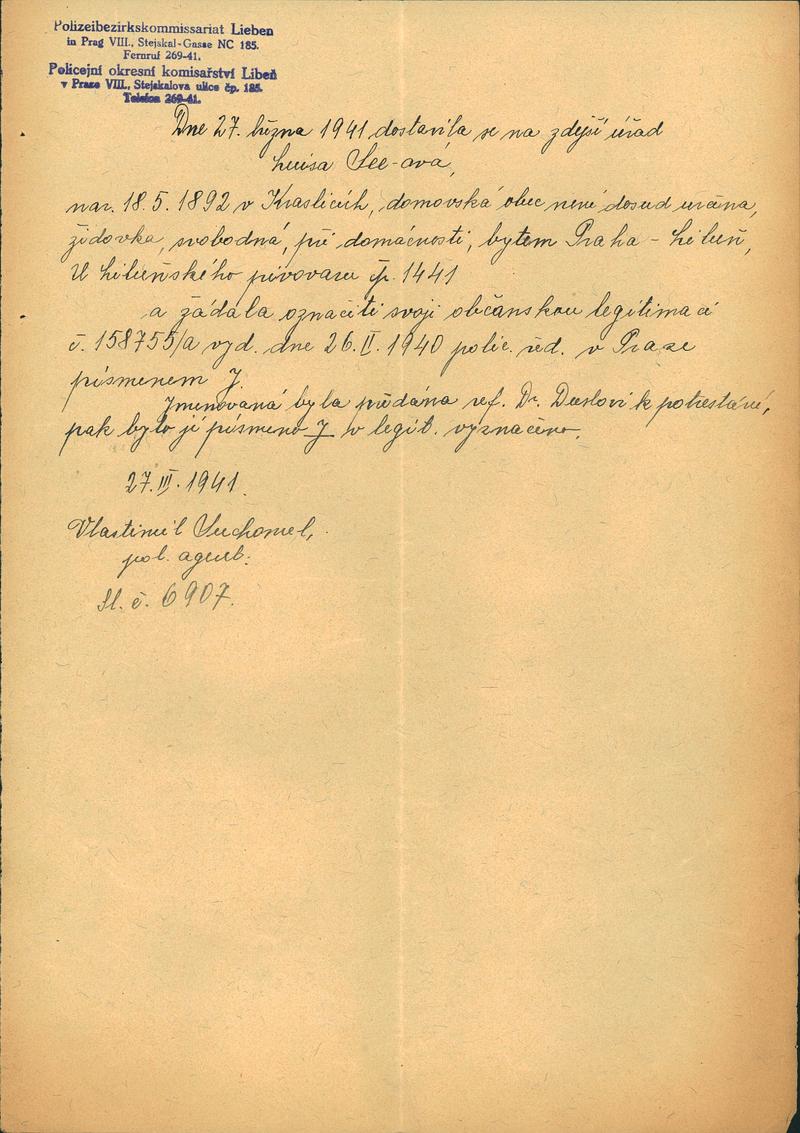 Polizeibezirkskommissariat Lieben
in Prag VIII., Stejskal-Gasse NC 185.
Fernruf 269-41.
Policejní okresní komisařství Libeň
v Praze VIII., Stejskalova ulice čp. 185.
Telefon 269-41.
Dne 27. března 1941 dostavila se na zdejší úřad
Luisa See-ová,
nar. 18. 5. 1892 v Kraslicích, domovská obec není dosud určena,
židovka, svobodná, při domácnosti, bytem Praha - Libeň,
U libeňského pivovaru čp. 1441
a žádala označiti svoji občanskou legitimaci
č. 158755/a vyd. dne 26. II. 1940 polic. řed. v Praze
písmenem J.
Jmenovaná byla předána ref. Dr. k potrestání,
pak bylo jí písmeno J v legit. vyznačeno.
27. III. 1941.
Vlastimil Suchomel,
pol. agent.
Sl. č. 6907.